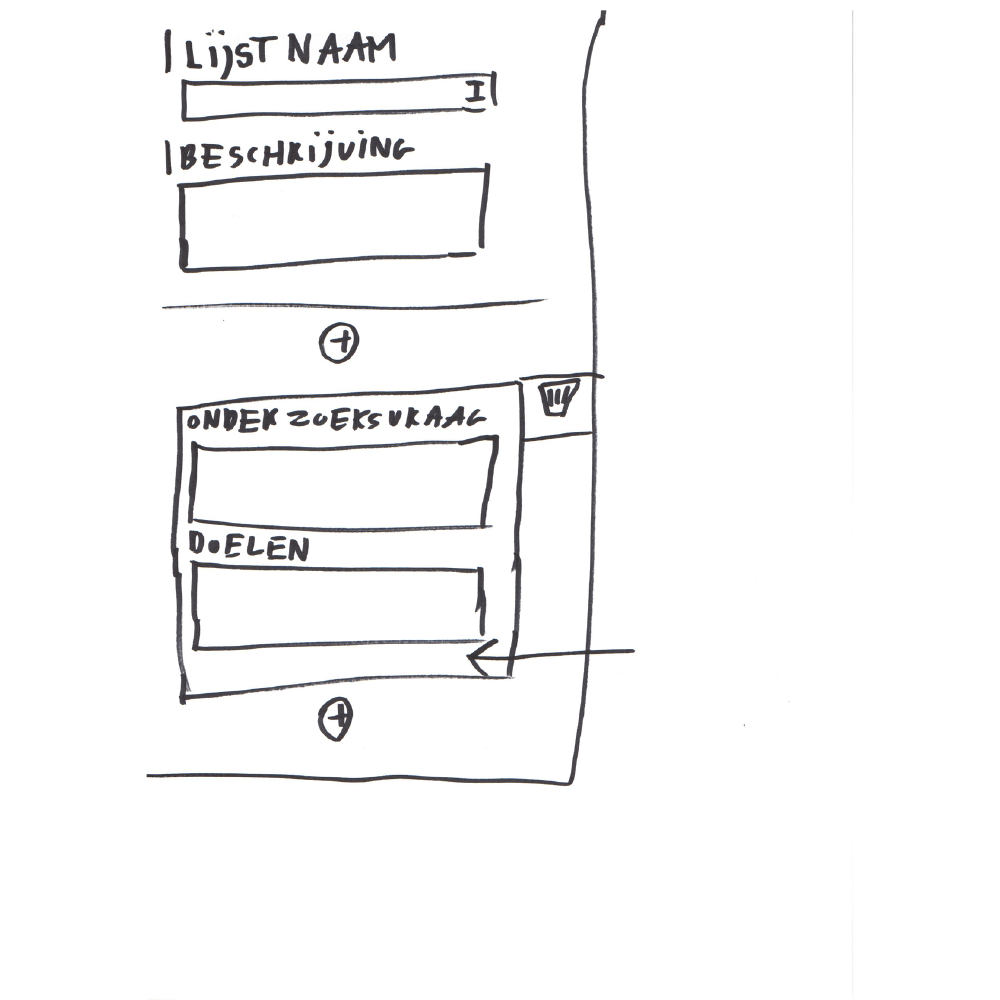 LijST NAAM
I
BESCHRijVING
ONDERZOEKSVRAAG
DOELEN